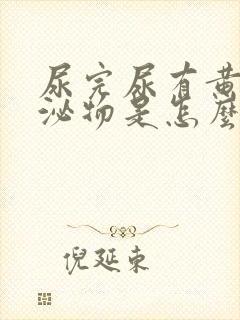 尿完尿有黄
泌物是怎麼
倪延東